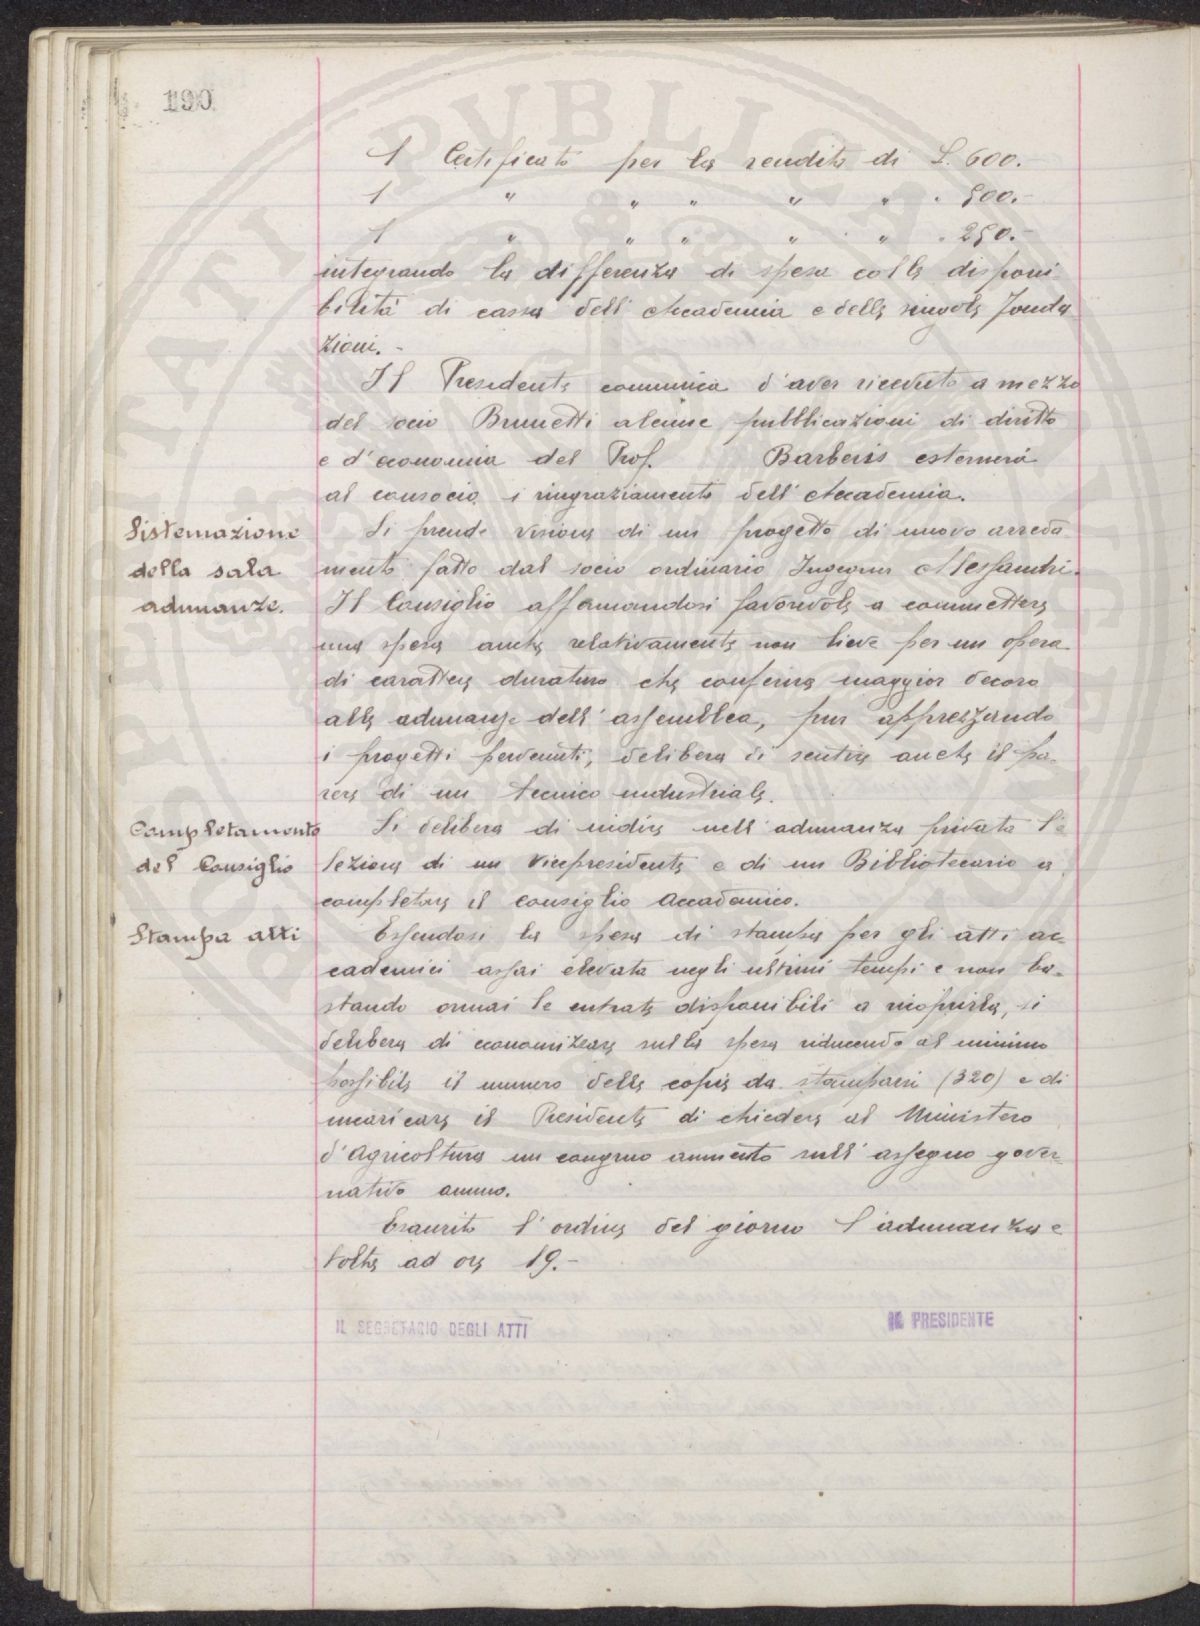 190
1 Certificato per la rendita di L. 600.-
1 " " " " " . 500.-
1 " " " " " . 250.-
integrando la differenza di spesa colle disponi
bilità di cassa dell'Accademia e delle singole Fonda
zioni.-
Il Presidente comunica d'aver ricevuto a mezzo
del socio Brunetti alcune pubblicazioni di diritto
e d'economia del Prof. Barberis esternerà
al consocio i ringraziamenti dell'Accademia.
Sistemazione
della sala
adunanze.
Si prende visione di un progetto di nuovo arreda
mento fatto dal socio ordinario Ingegner Alessandri.
Il Consiglio affermandosi favorevole a commettere
una spesa anche relativamente non lieve per un opera
di carattere duraturo che conferirà maggior decoro
alle adunanze dell'assemblea, pur apprezzando
i progetti pervenuti, delibera di sentire anche il pa-
rere di un tecnico industriale.
Completamento
del Consiglio
Si delibera di indire nell'adunanza privata l'e
lezione di un Vicepresidente e di un Bibliotecario a
completare il consiglio Accademico.
Stampa atti
Essendosi la spesa di stampa per gli atti ac-
cademici assai elevata negli ultimi tempi e non ba-
stando ormai le entrate disponibili a ricoprirla, si
delibera di economizzare sulla spesa riducendo al minimo
possibile il numero delle copie da stamparsi (320) e di
incaricare il Presidente di chiedere al Ministero
d'Agricoltura un congruo aumento sull'assegno gover-
nativo annuo.
Esaurito l'ordine del giorno l'adunanza è
tolta ad ore 19.-
IL SEGRETARIO DEGLI ATTI
IL PRESIDENTE